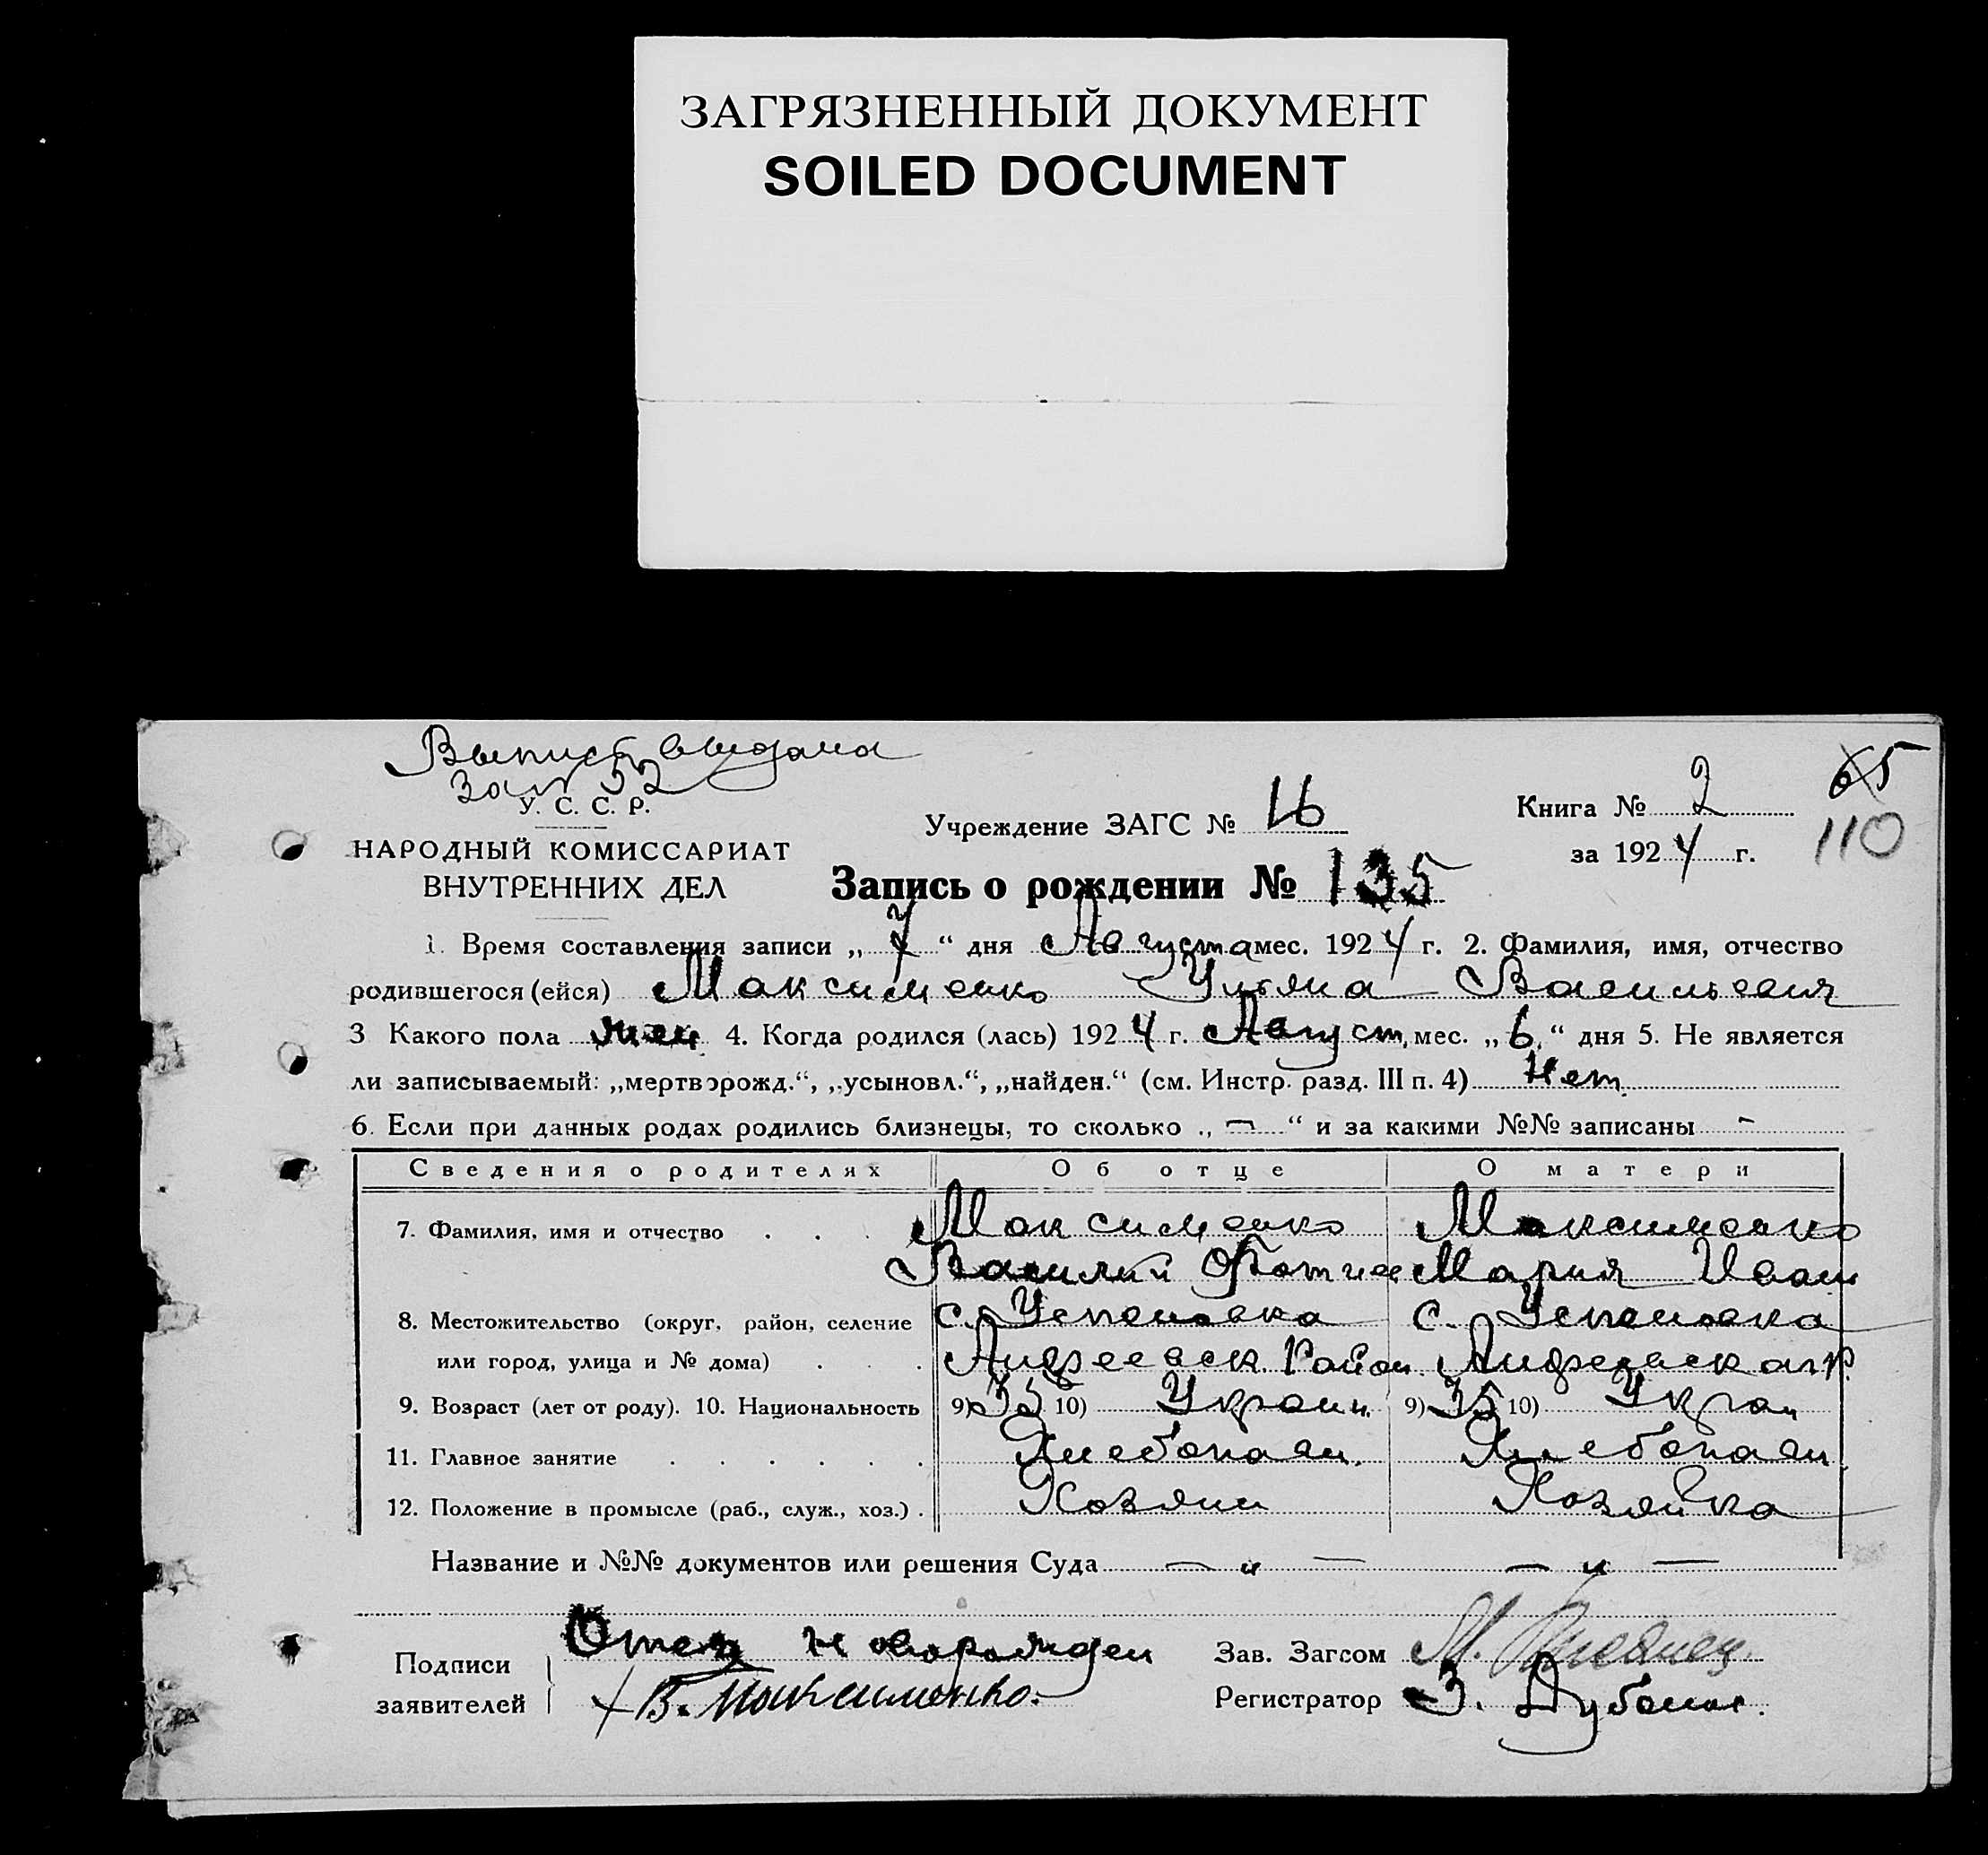 ЗАГРЯЗНЕННЫЙ ДОКУМЕНТ
SOILED DOCUMENT
Выпись выдана
У. С. С. Р.
НАРОДНЫЙ КОМИССАРИАТ
ВНУТРЕННИХ ДЕЛ
Учреждение ЗАГС № 16
Книга № 2
65
за 1924 г.
110
Запись о рождении № 135
1. Время составления записи „ 7 “ дня Августа мес. 1924 г. 2. Фамилия, имя, отчество
родившегося (ейся) Максименко Ульяна Васильевня
3 Какого пола жен. 4. Когда родился (лась) 1924 г. Август, мес. „ 6, “ дня 5. Не является
ли записываемый: „мертворожд.“, „усыновл.“, „найден.“ (см. Инстр. разд. III п. 4) Нет.
6. Если при данных родах родились близнецы, то сколько „ — “ и за какими №№ записаны -
Сведения о родителях Об отце О матери
7. Фамилия, имя и отчество . . . Максименко Максименко
Василий Фотиев Мария Иван
8. Местожительство (округ, район, селение с. Успеновка с. Успеновка
или город, улица и № дома) . . . Андреевск Район. Андреевска р.
9. Возраст (лет от роду). 10. Национальность 9) 35 10) Украин. 9) 35 10) Украин
11. Главное занятие . . . . . . Хлебопаш. Хлебопаш.
12. Положение в промысле (раб., служ., хоз.) . Хозяин Хозяйка
Название и №№ документов или решения Суда — „ — — „ —
Подписи заявителей Отец новорожден
+ В. Максименко.
Зав. Загсом М.
Регистратор З.